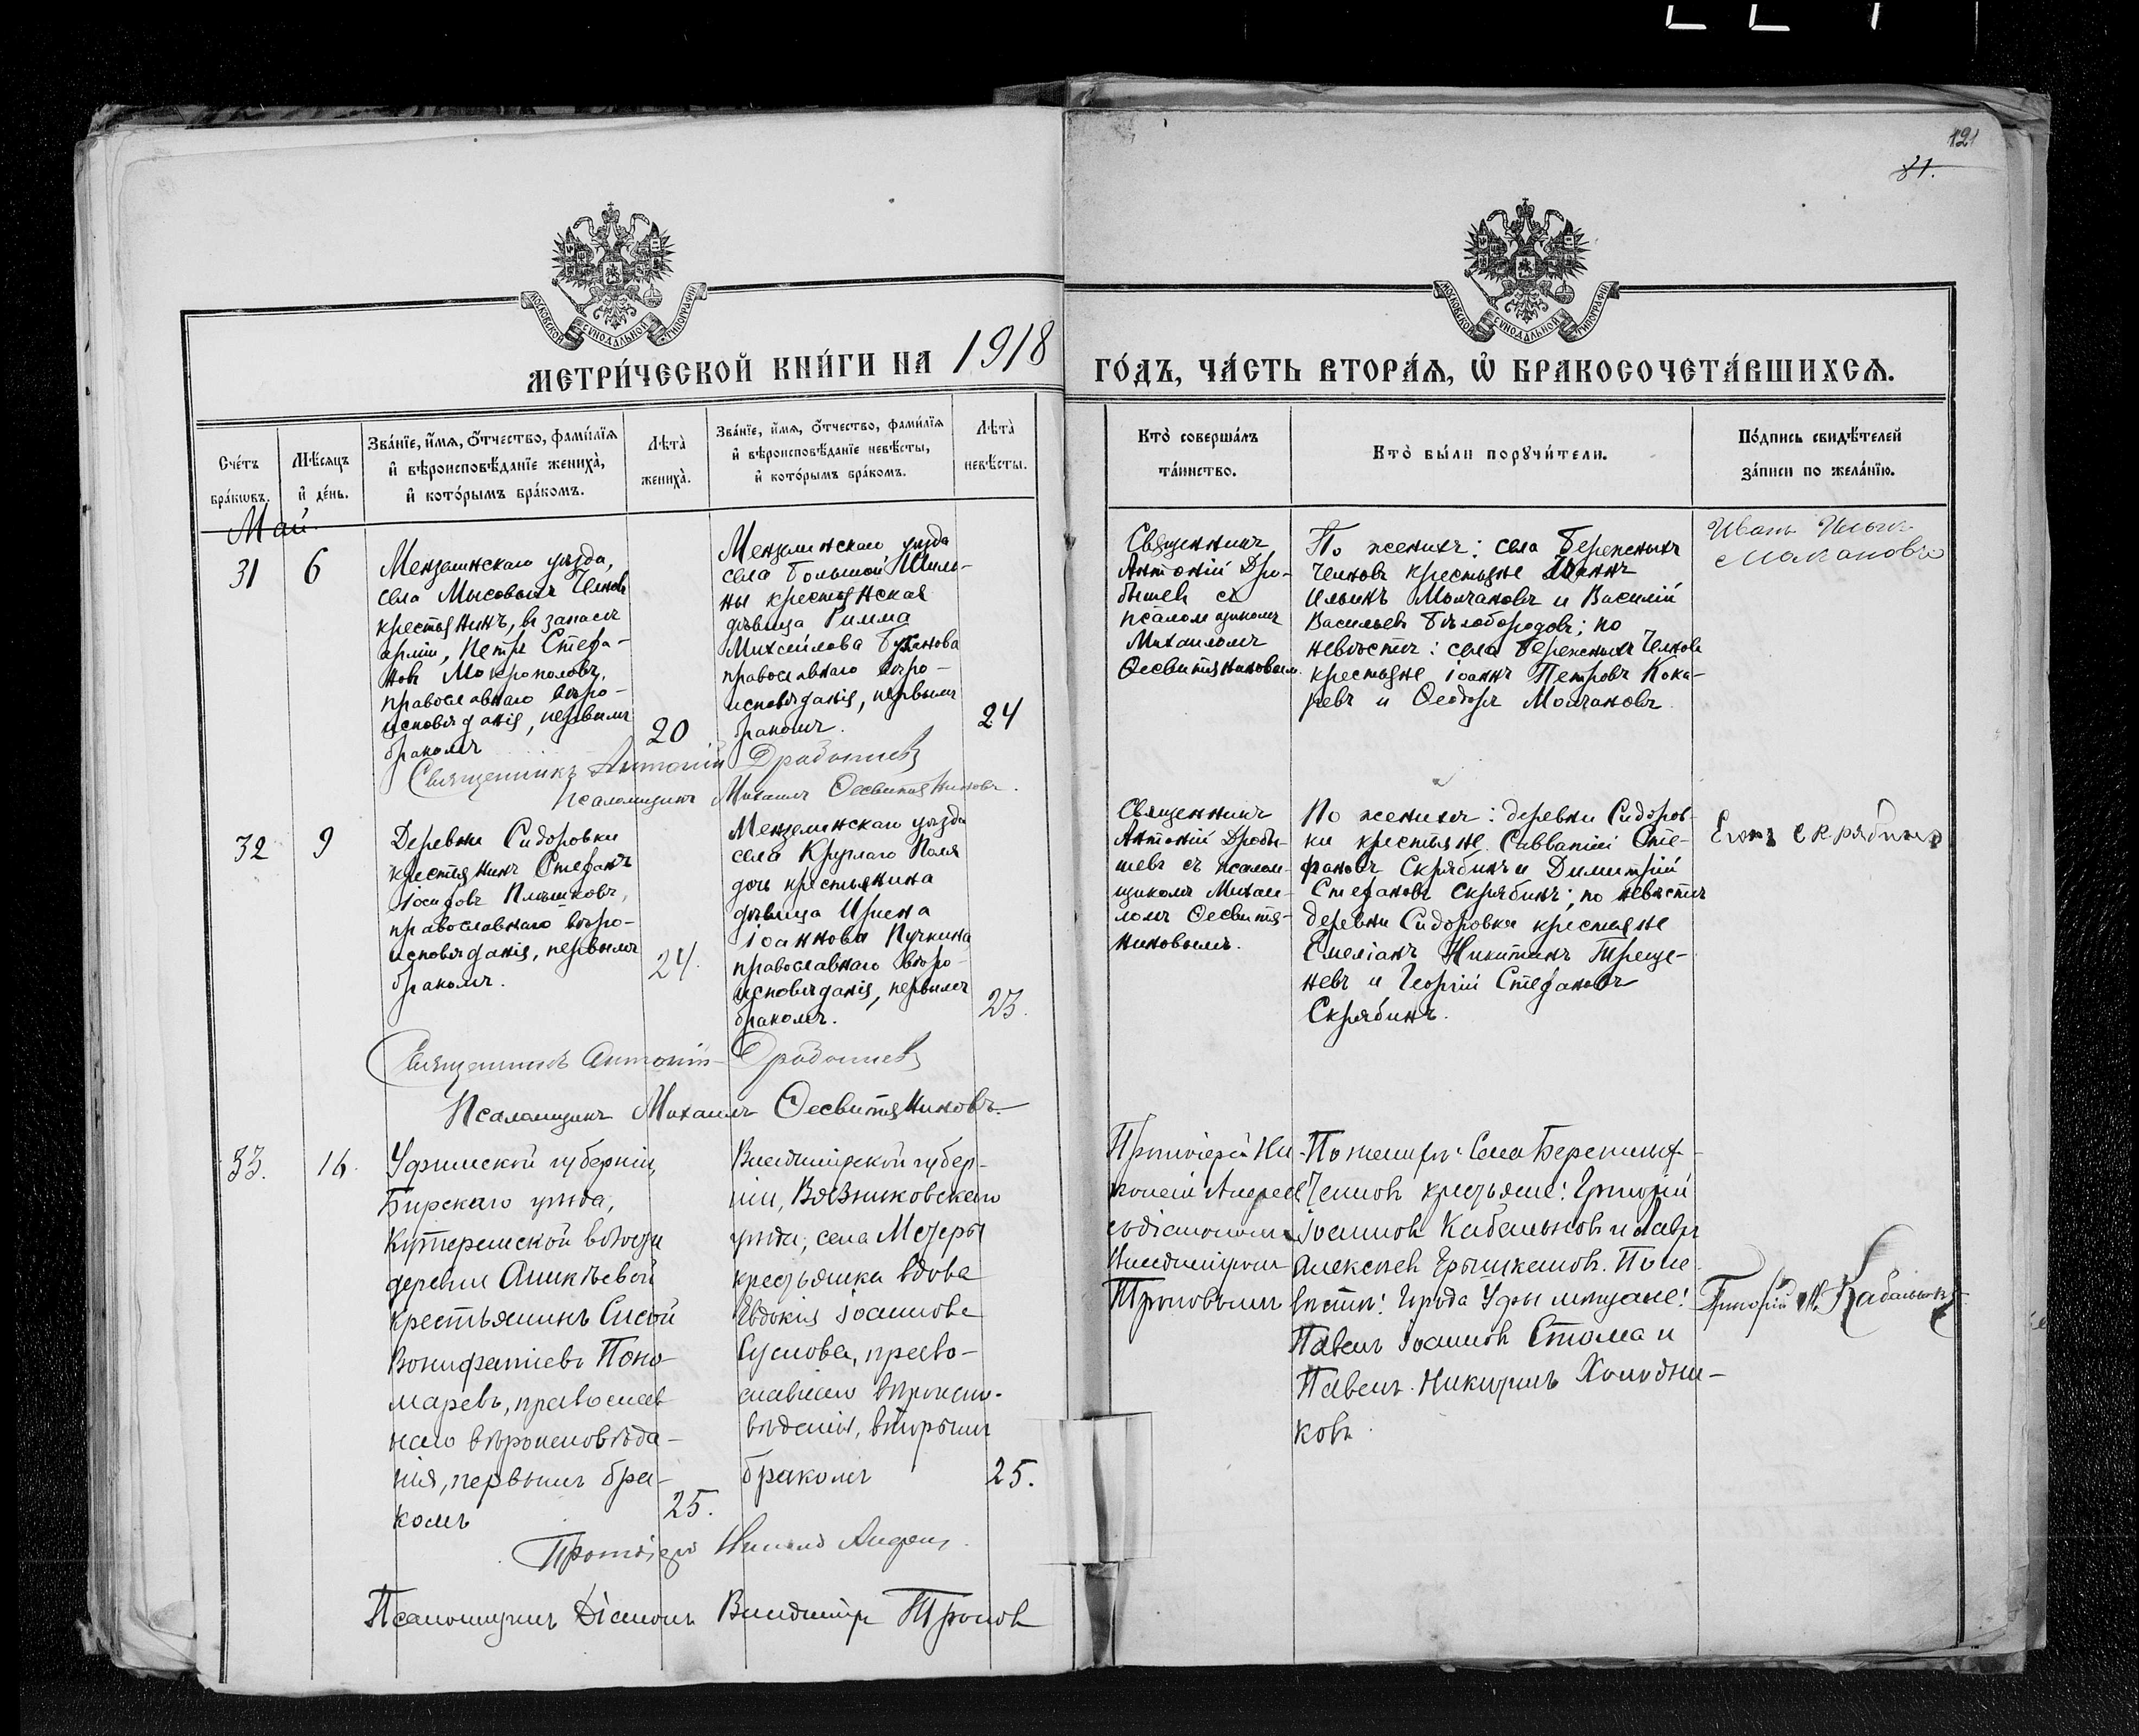 121
81.
МОСКОВСКОЙ СѴНОДАЛЬНОЙ ТИПОГРАФІИ
МОСКОВСКОЙ СѴНОДАЛЬНОЙ ТИПОГРАФІИ
МЕТРИ́ЧЕСКОЙ КНИ́ГИ НА 1918
ГО́ДЪ, ЧА́СТЬ ВТОРА́Ѧ, Ѽ БРАКОСОЧЕТА́ВШИХСѦ.
Сче́тъ
бра́кѡвъ.
Мѣ́сяцъ
и҆ де́нь.
Зва́нїе, и҆́мѧ, ѻ҆́тчество, фами́лїѧ
и҆ вѣроисповѣ́данїе жениха̀,
и҆ кото́рымъ бра́комъ.
Лѣта̀
жениха̀.
Зва́нїе, и҆́мѧ, ѻ҆́тчество, фами́лїѧ
и҆ вѣроисповѣ́данїе невѣ́сты,
и҆ кото́рымъ бра́комъ.
Лѣта̀
невѣ́сты.
Кто̀ соверша́лъ
та́инство.
Кто̀ бы́ли порꙋчи́тели.
По́дпись свидѣ́телей
за́писи по жела́нїю.
Май
31
6
Мензелинскаго уѣзда,
села Мысовыхъ Челновъ
крестьянинъ, въ запасѣ
арміи, Петръ Стефа-
новъ Мокрополовъ,
православнаго вѣро-
исповѣданія, первымъ
бракомъ
20
Мензелинскаго уѣзда
села Большой Шиль-
ны крестьянская
дѣвица Римма
Михайлова
православнаго вѣро-
исповѣданія, первымъ
бракомъ.
24
Священникъ
Антоній Дро-
бышевъ съ
псаломщикомъ
Михаиломъ
Ѳесвитяниновымъ
По женихѣ: села Бережныхъ
Челновъ крестьяне Іоаннъ
Ильинъ Молчановъ и Василій
Васильевъ Бѣлобородовъ; по
невѣстѣ: села Бережныхъ Челновъ
крестьяне Іоаннъ Петровъ Кока-
ревъ и Ѳеодоръ Молчановъ
Иванъ Ильичъ
Священникъ Антоній Дробышевъ
Псаломщикъ Михаилъ Ѳесвитяниновъ.
32
9
Деревни Сидоровки
крестьянинъ Стефанъ
Іосифовъ Плѣшковъ,
православнаго вѣро-
исповѣданія, первымъ
бракомъ.
24.
Мензелинскаго уѣзда
села Круглаго Поля
дочь крестьянина
дѣвица Ирина
Іоаннова Пучкина
православнаго вѣро-
исповѣданія, первымъ
бракомъ.
23.
Священникъ
Антоній Дробы-
шевъ съ псалом-
щикомъ Михаи-
ломъ Ѳесвитя-
ниновымъ.
По женихѣ: деревни Сидоров-
ки крестьяне Савватій Сте-
фановъ Скрябинъ и Димитрій
Стефановъ Скрябинъ; по невѣстѣ
деревни Сидоровки крестьяне
Емеліанъ Никитинъ Треще-
невъ и Георгій Стефановъ
Скрябинъ.
Скрябинъ
Священникъ Антоній Дробышевъ
Псаломщикъ Михаилъ Ѳесвитяниновъ.
33.
16.
Уфимской губерніи,
Бирскаго уѣзда,
Кутеремской волости
деревни Аникѣевой
крестьянинъ Сысой
Вонифатіевъ Поно-
маревъ, православ
наго вѣроисповѣда-
нія, первымъ бра-
комъ
25.
Владимірской губер-
ніи, Вязниковскаго
уѣзда, села Мстеры
крестьянка вдова
Евдокія Іоаннова
Суслова, право-
славнаго вѣроиспо-
вѣданія, вторымъ
бракомъ
25.
Протоіерей Ни-
колай Андреев
съ діакономъ
Владиміромъ
Троповымъ
По женихѣ: Села Бережныхъ
Челновъ крестьяне: Григорій
Іоанновъ Кабальновъ и Лавръ
Алексѣевъ Ерыжкановъ. По не
вѣстѣ: Города Уфы мѣщане:
Павелъ Іоанновъ Стома и
Павелъ Никифоровъ Холодни-
ковъ
Григорій И. Кабальновъ
Протоіерей Николай Андреев
Псаломщикъ Діаконъ Владиміръ Троповъ